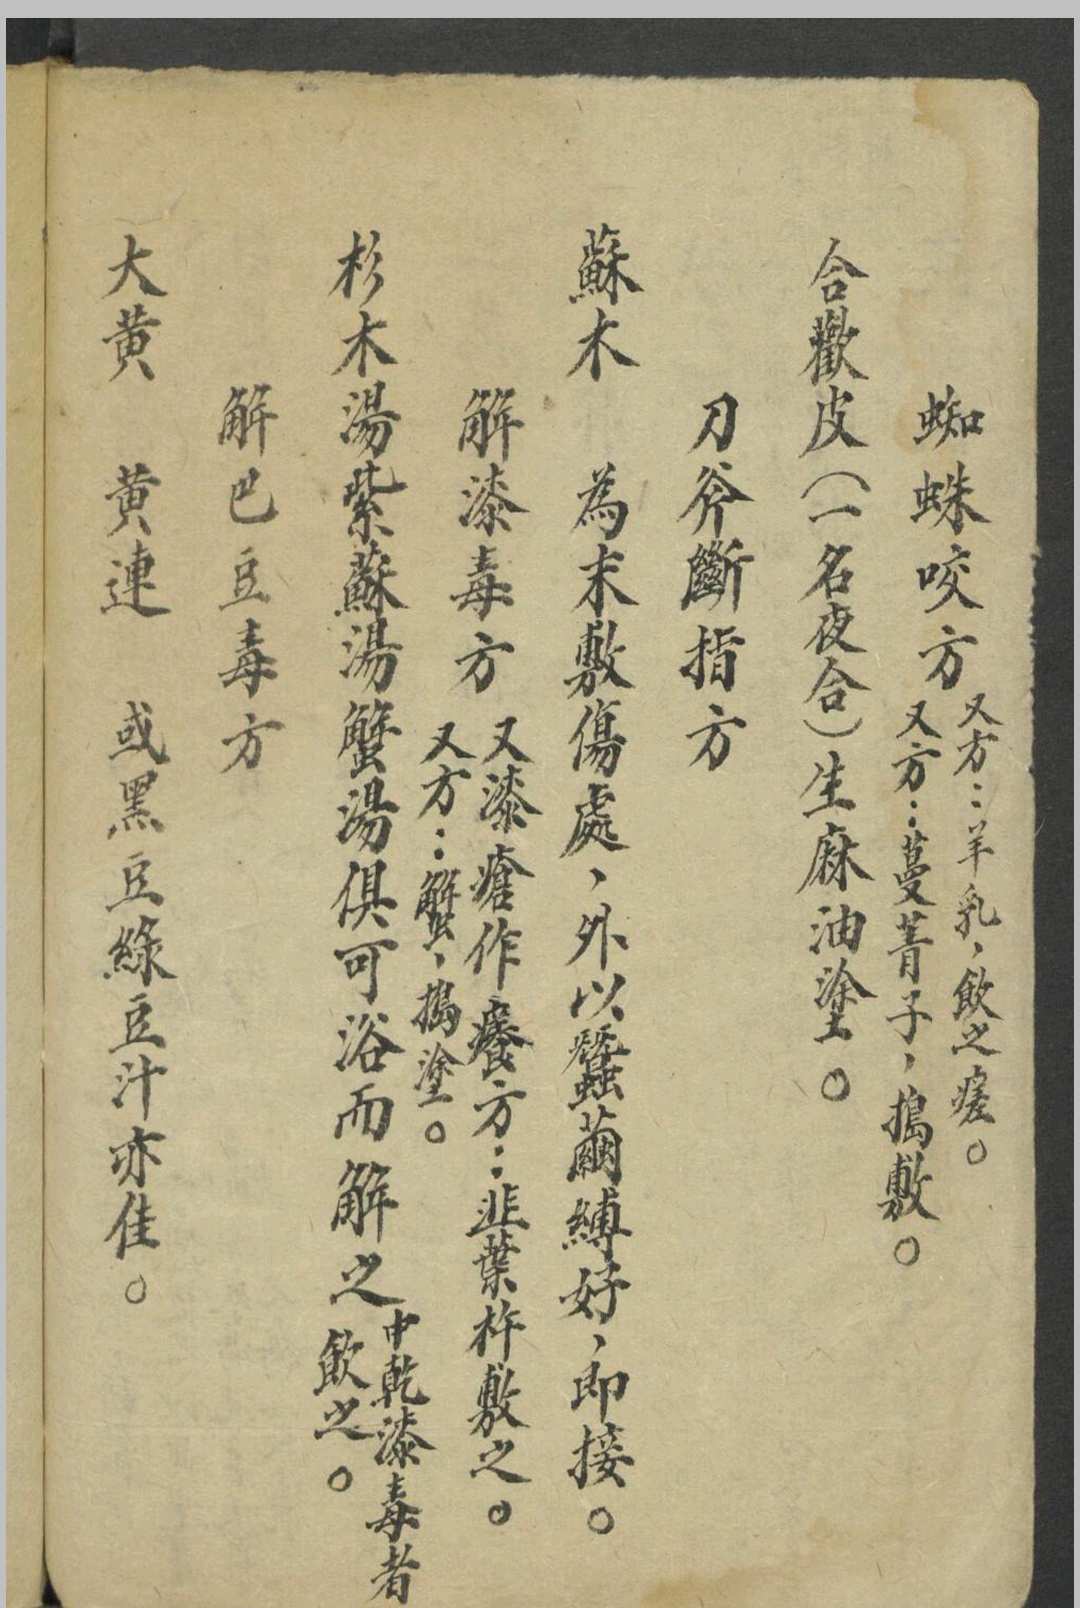 蜘蛛咬方
又方：羊乳，飲之瘥。
又方：蔓菁子，搗敷。
合歡皮（一名夜合）生麻油塗。
刀斧斷指方
蘇木　為末敷傷處，外以蠶繭縛好，即接。
解漆毒方
又漆瘡作癢方：韭葉杵敷之。
又方：蟹，搗塗。
杉木湯紫蘇湯蟹湯俱可浴而解之
中乾漆毒者
飲之。
解巴豆毒方
大黃　黃連　或黑豆綠豆汁亦佳。